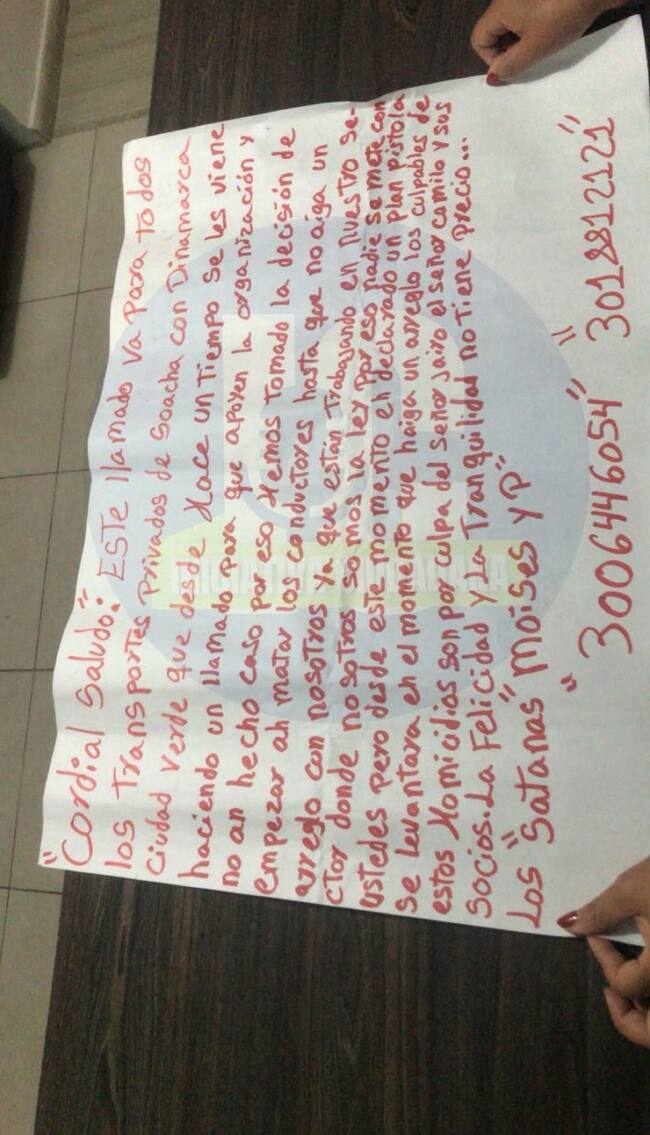 "Cordial Saludo": Este llamado va para todos
los transportes Privados de Soacha con Dinamarca
Ciudad Verde que desde Hace un tiempo se les viene
haciendo un llamado para que apoyen la organización y
no an hecho caso por eso Hemos tomado la decisión de
empezar ah matar los conductores hasta que no aiga un
arreglo con nosotros ya que están trabajando en nuestro se-
ctor donde nosotros somos la ley ppr eso nadie se mete con
ustedes pero desde este momento en declarado un plan pistola
se levantara en el momento que haiga un arreglo los culpables de
estos Homicidios son por culpa del señor jairo el señor camilo y sus
socios. La Felicidad y la tranquilidad no tiene precio...
Los "Satanas" moises y P"
"3006446054" " 3018812121"
INICIATIVA CIUDADANA